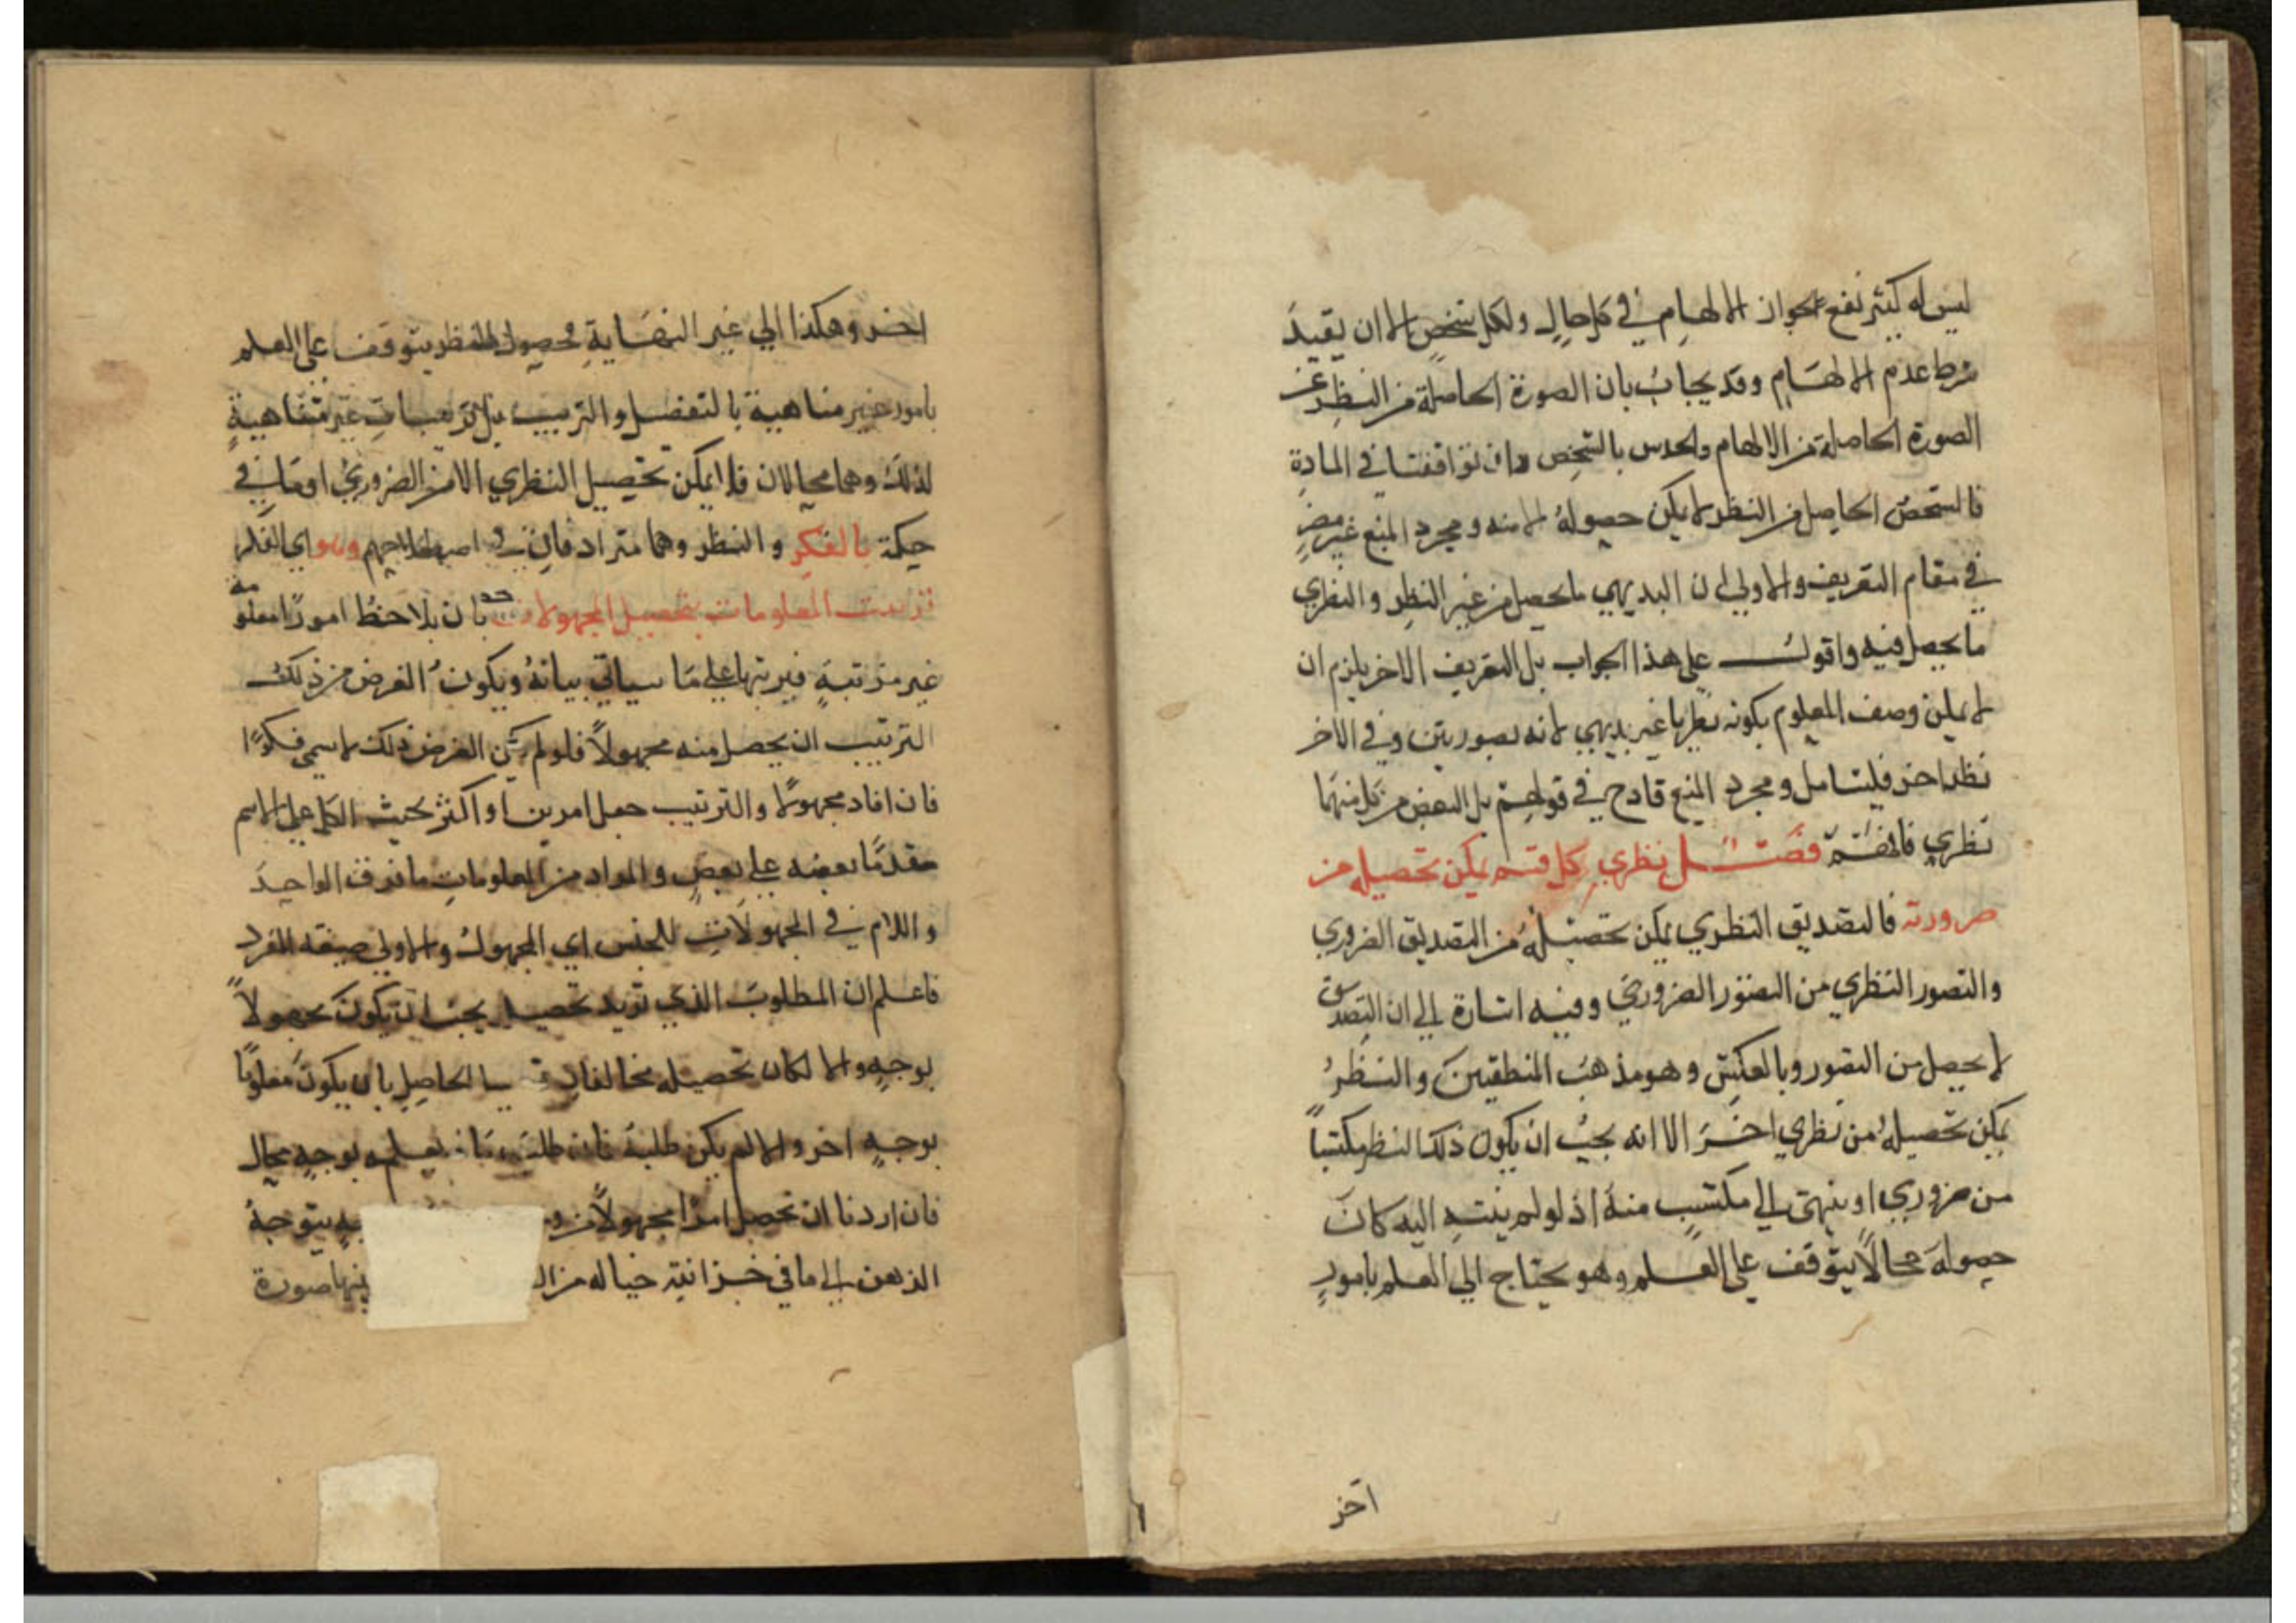 ليس له كثير نفع لجواز الالهام في كل حال ولكل شخص الا ان يقيد
بشرط عدم الالهام وقد يجاب بان الصورة الحاصلة من النظر غير
الصورة الحاصلة من الالهام والحدس بالشخص وان توافقتا في المادة
فالشخص الحاصل من النظر لا يمكن حصوله الا منه ومجرد المنع غير مضر
في مقام التعريف والاولى ان البديهي ما يحصل من غير النظر والنظري
ما يحصل فيه واقول على هذا الجواب بل التعريف الاخر يلزم ان
لا يمكن وصف المعلوم بكونه نظريا غير بديهي لانه بصورتين وفي الاخر
نظر اخر فليتامل ومجرد المنع قادح في قولهم بل البعض من كل منهما
نظري فافهم فصل نظري كل قسم يمكن تحصيله من
ضرورته فالتصديق النظري يمكن تحصيله من التصديق الضروري
والتصور النظري من التصور الضروري وفيه اشارة الي ان التصديق
لا يحصل من التصور وبالعكس وهو مذهب المنطقيين والنظر
يمكن تحصيله من نظري اخر الا انه يجب ان يكون ذلك النظر مكتسبا
من ضروري او ينتهي الي مكتسب منه اذ لو لم ينته اليه كان
حصوله محالا يتوقف على العلم وهو يحتاج الي العلم بامور
اخر
اخر وهكذا الي غير النهاية فحصول النظر يتوقف على العلم
بامور غير متناهية بالتفصل والترتيب بل ترتيبات غير متناهية
لذلك وهما محالان فلا يمكن تحصيل النظري الا من الضروري اوما في
حكمة بالفكر والنظر وهما مترادفان في اصطلاحهم وهو اي الفكر
ترتيب المعلومات بتحصيل المجهولات بان يلاحظ امورا معلومة
غير مرتبة فيرتبها على ما سياتي بيانه ويكون الغرض من ذلك
الترتيب ان يحصل منه مجهولا فلو لم يكن الغرض ذلك لا يسمى فكرا
فان افاد مجهولا والترتيب جعل امرين او اكثر بحيث الكل على الاسم
مقدما بعضه على بعض والمراد من المعلومات ما فوق الواحد
واللام في المجهولات للجنس اي المجهول والاولى صيغة المفرد
فاعلم ان المطلوب الذي تريد تحصيله يجب ان يكون مجهولا
بوجه والا لكان تحصيله الحاصل بان يكون معلوما
بوجه اخر والا لم يكن طلبه فان طلب لم يعلم بوجه محال
فان اردنا ان تحصل امرا مجهولا من يتوجه
الذهن الي ما في خزانته خياله من منها صورة